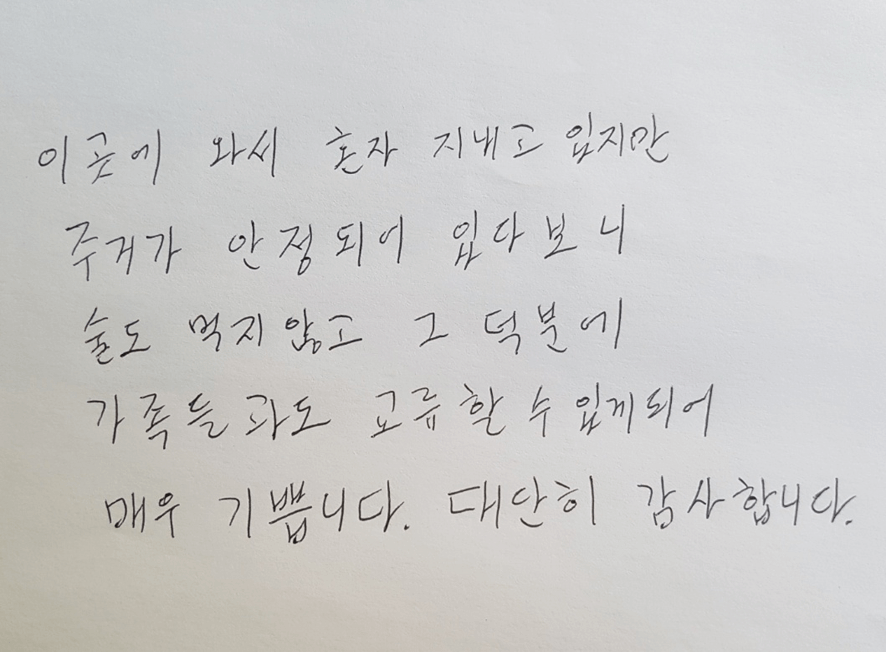 이곳에 와서 혼자 지내고 있지만
주거가 안정되어 있다보니
술도 먹지않고 그 덕분에
가족들과도 교류할 수 있게되어
매우 기쁩니다. 대단히 감사합니다.